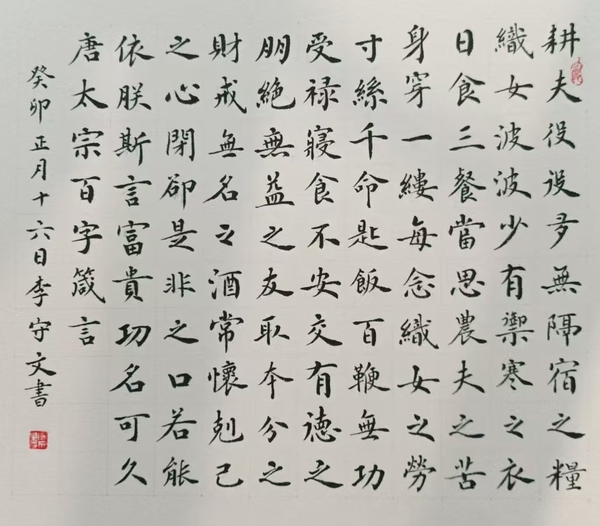 耕夫役役多無隔宿之糧
織女波波少有禦寒之衣
日食三餐當思農夫之苦
身穿一縷每念織女之勞
寸絲千命匙飯百鞭無功
受禄寢食不安交有德之
朋絶無益之友取本分之
財戒無名之酒常懷剋己
之心閉卻是非之口若能
依朕斯言富貴功名可久
唐太宗百字箴言
癸卯正月十六日李守文書